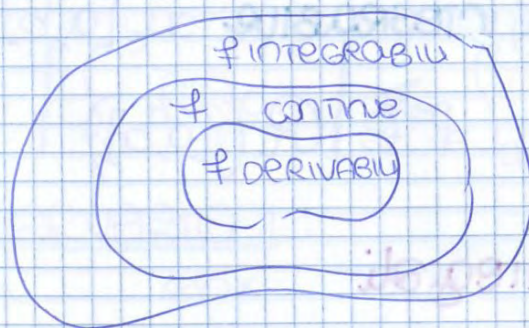 f INTEGRABILI
f CONTINUE
f DERIVABILI